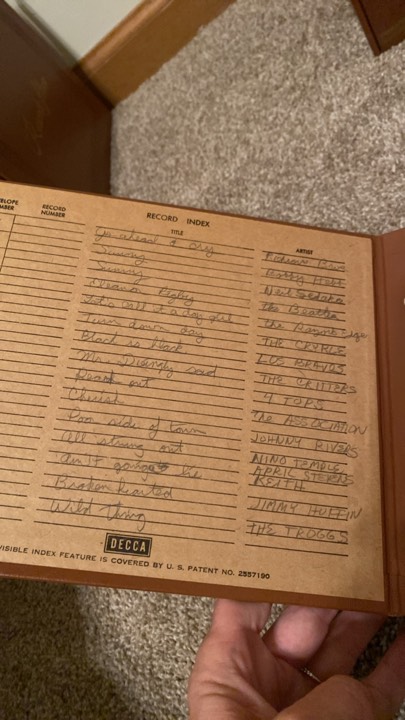 RECORD INDEX
RECORD NUMBER TITLE ARTIST
Go ahead & Cry
Sunny Bobby Hebb
Sunny Neil Sedaka
Rigby the Beatles
Let's call it a day girl the Edge
Turn down day THE CYRKLE
Black is black LOS BRAVOS
Mr. Dieingly sad THE CRITTERS
Reach out 4 TOPS
Cherish The ASSOCIATION
Poor side of town JOHNNY RIVERS
all strung out NINO TEMPLE APRIL STEVENS
ain't gonna lie KEITH
Broken hearted JIMMY RUFFIN
Wild Thing THE TROGGS
DECCA
VISIBLE INDEX FEATURE IS COVERED BY U. S. PATENT NO. 2557190